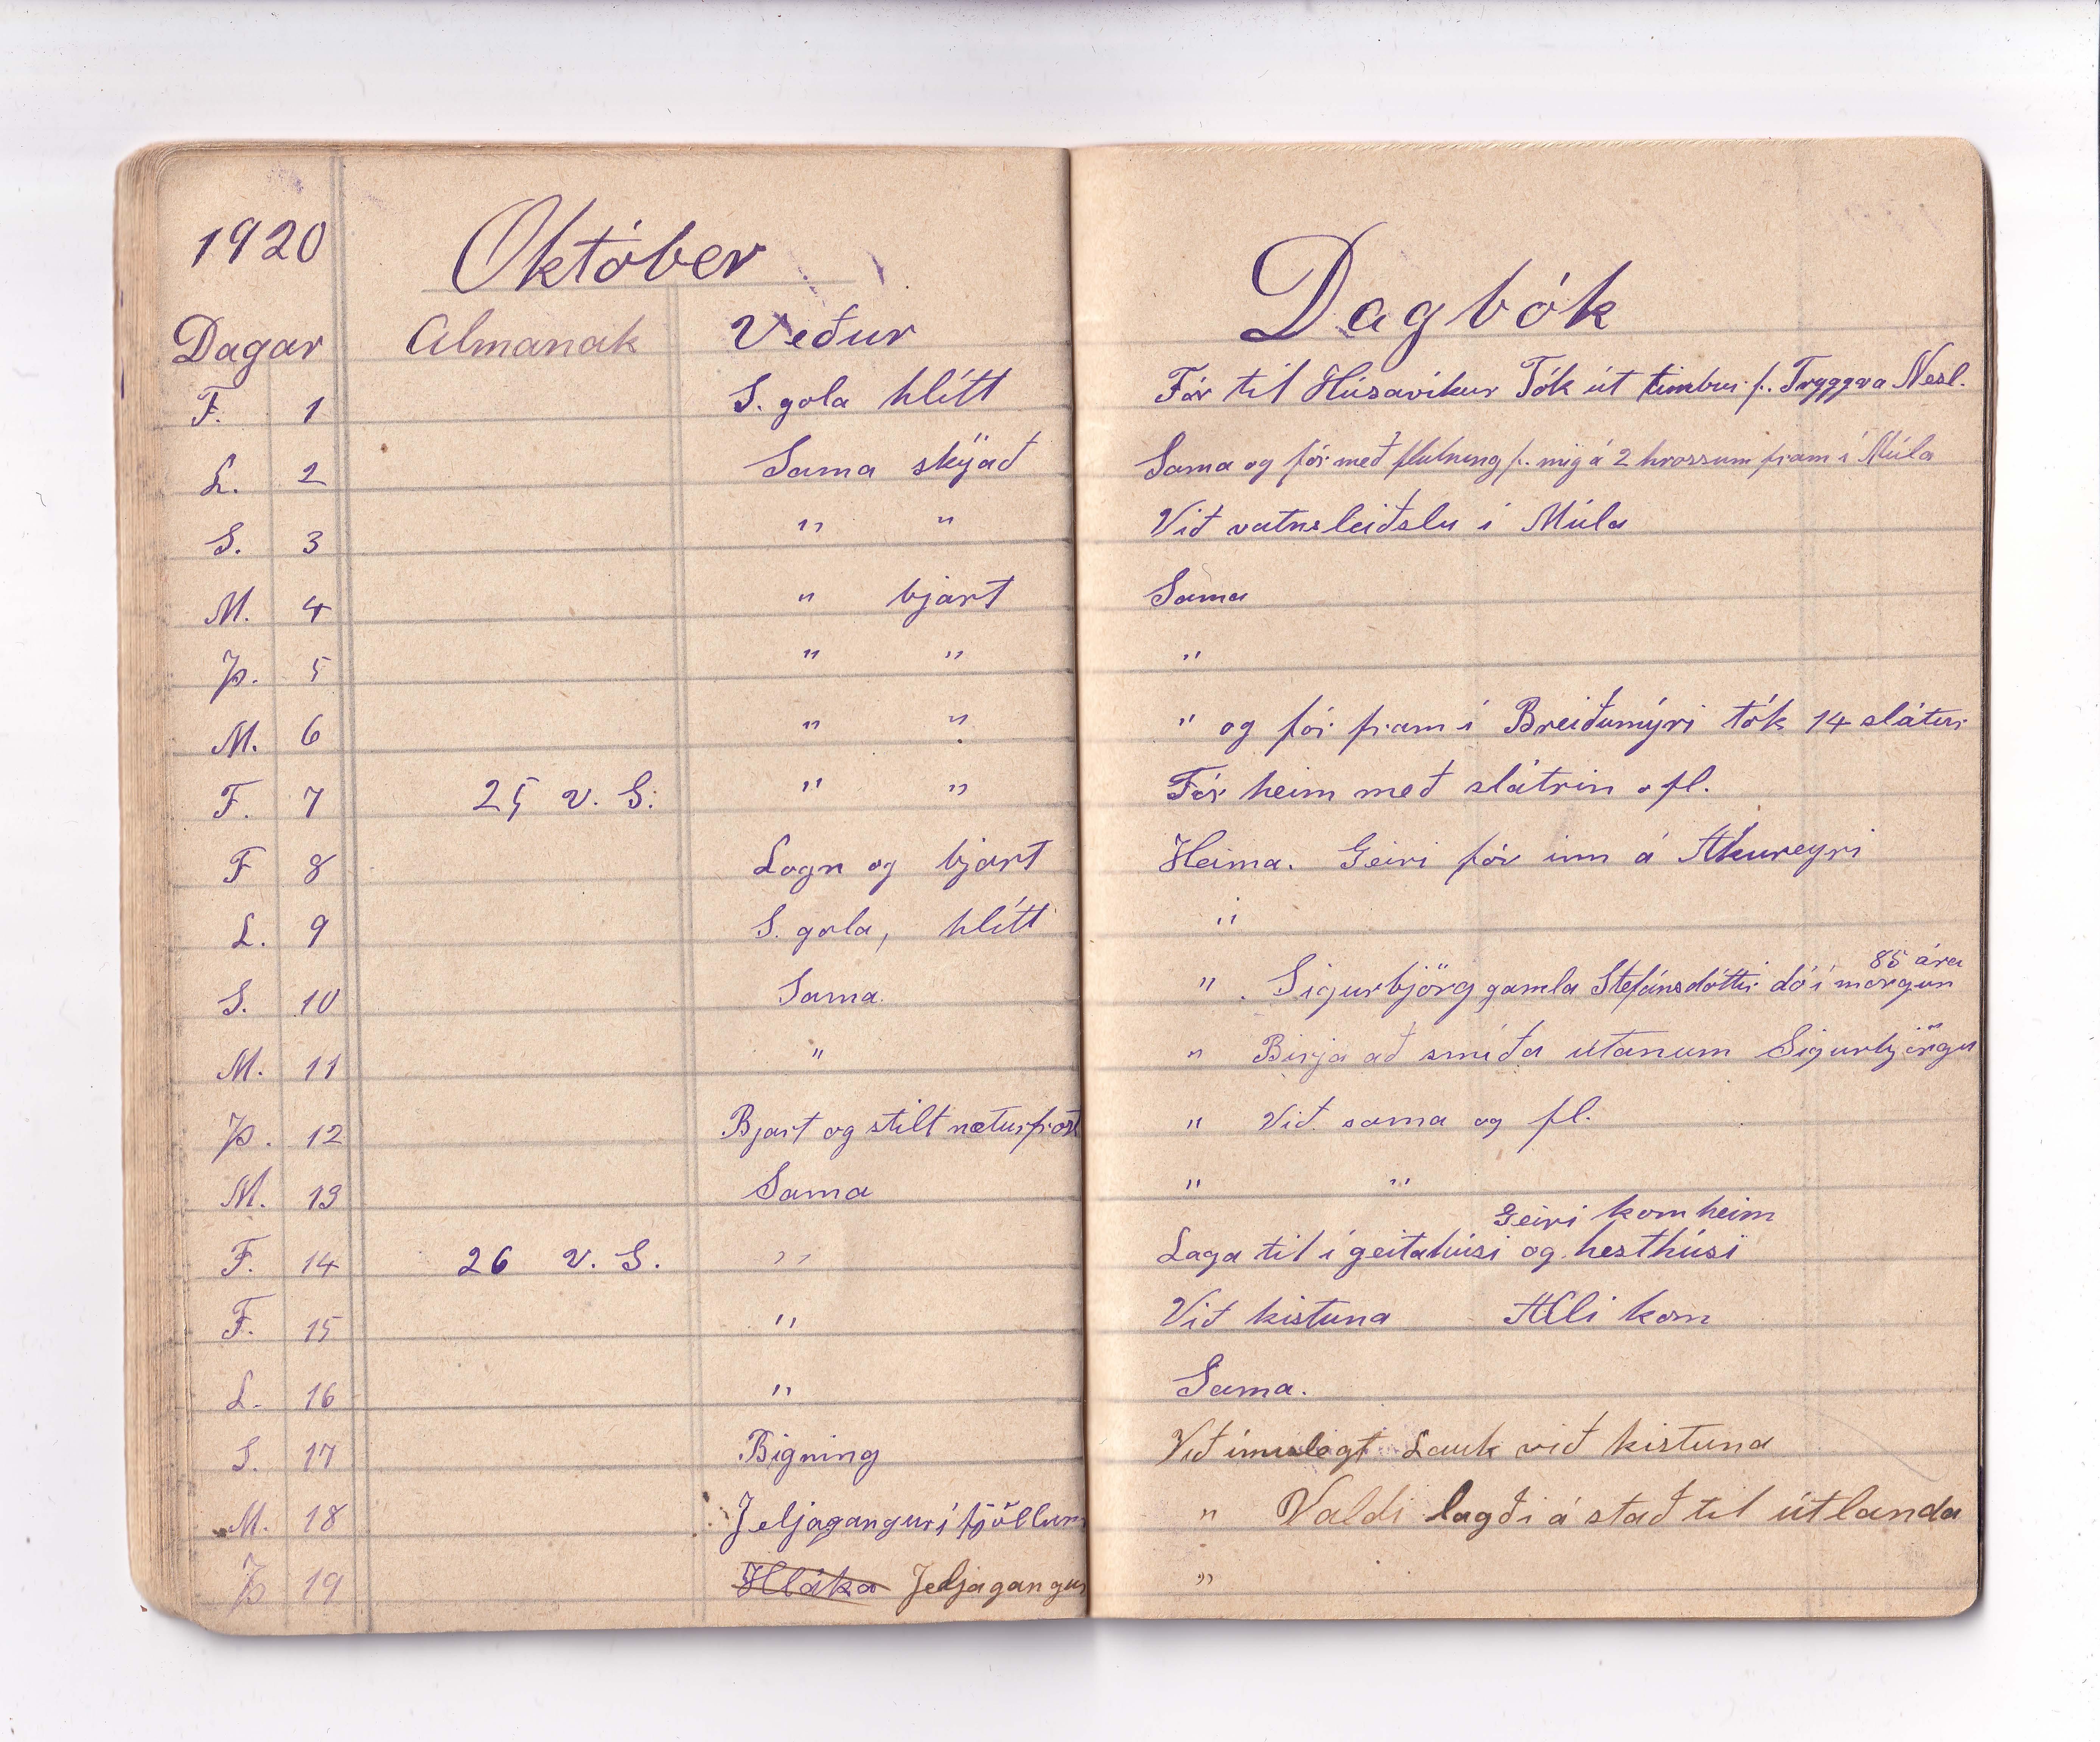 1920 Október
Dagar Almanak Veður
F. 1 S. gola hlítt
L. 2 Sama skýjað
S. 3 " "
M. 4 " bjart
Þ. 5 " "
M. 6 " "
F. 7 25 v. S. " "
F 8 Logn og bjart
L. 9 S. gola, hlítt
S. 10 Sama
M. 11 "
Þ. 12 Bjart og stilt næturfrost
M. 13 Sama
F. 14 26 v. S. "
F. 15 "
L. 16 "
S. 17 Bigning
M. 18 Jeljagangur í fjöllum
Þ 19 Hláka Jeljagangur
Dagbók
Fór til Húsavíkur Tók út timbur f. Tryggva Nesl.
Sama og fór með flutning f. mig á 2 hrossum fram í Múla
Við vatnsleiðslu í Múla
Sama
"
" og fór fram í Breiðumýri tók 14 slátur
Fór heim með slátrin ofl.
Heima. Geiri fór inn á Akureyri
"
85 ára
" . Sigurbjörg gamla Stefánsdóttir dó í morgun
" Birja að smíða utanum Sigurbjörgu
" Við sama og fl.
" "
Geiri kom heim
Laga til í geitahúsi og hesthúsi
Við kistuna Alli kom
Sama.
Við ímislegt Lauk við kistuna
" Valdi lagði á stað til útlanda
"